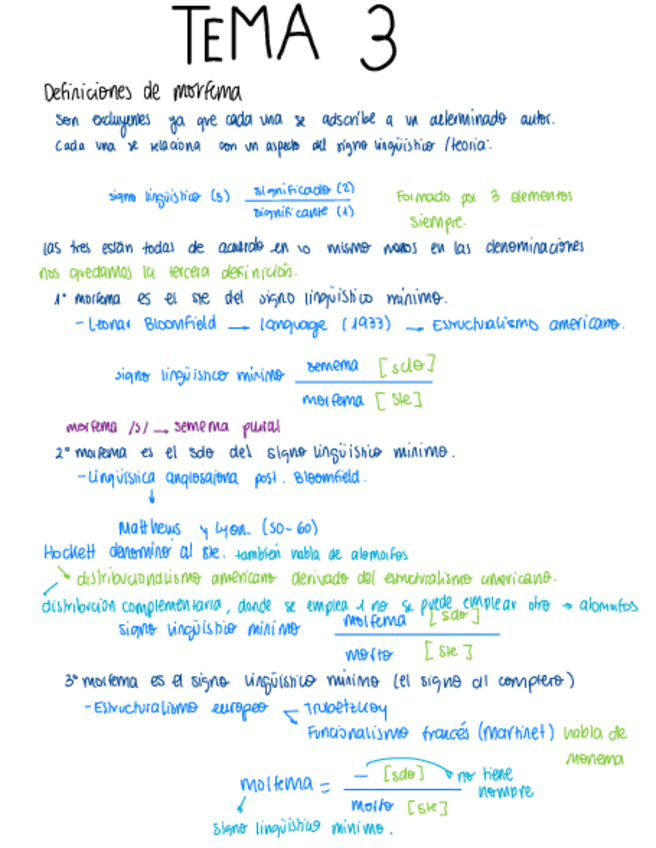 TEMA 3
Definiciones de morfema
Son excluyentes ya que cada una se adscribe a un determinado autor.
Cada una se relaciona con un aspecto del signo lingüístico /teoría:
signo lingüístico (3) significado (2)
significante (1)
Formado por 3 elementos
siempre.
las tres están todas de acuerdo en lo mismo menos en las denominaciones
nos quedamos la tercera definición.
1º morfema es el ste del signo lingüístico mínimo.
- Leonar Bloomfield → Language (1933) → Estructuralismo americano.
signo lingüístico mínimo semema [sdo]
morfema [ste]
morfema /s/ → semema plural
2º morfema es el sdo del signo lingüístico mínimo.
- Lingüística anglosajona post. Bloomfield.
↓
Matthews y Lyon. (50-60)
Hockett denominó al ste. también habla de alomorfos
distribucionalismo americano derivado del estructuralismo americano.
distribución complementaria, donde se emplea 1 no se puede emplear otro → alomorfos
signo lingüístico mínimo morfema [sdo]
morfo [ste]
3º morfema es el signo lingüístico mínimo (el signo al completo)
- Estructuralismo europeo Trubetzkoy
Funcionalismo francés (Martinet) habla de
monema
morfema = - [sdo] no tiene
nombre
morfo [ste]
signo lingüístico mínimo.